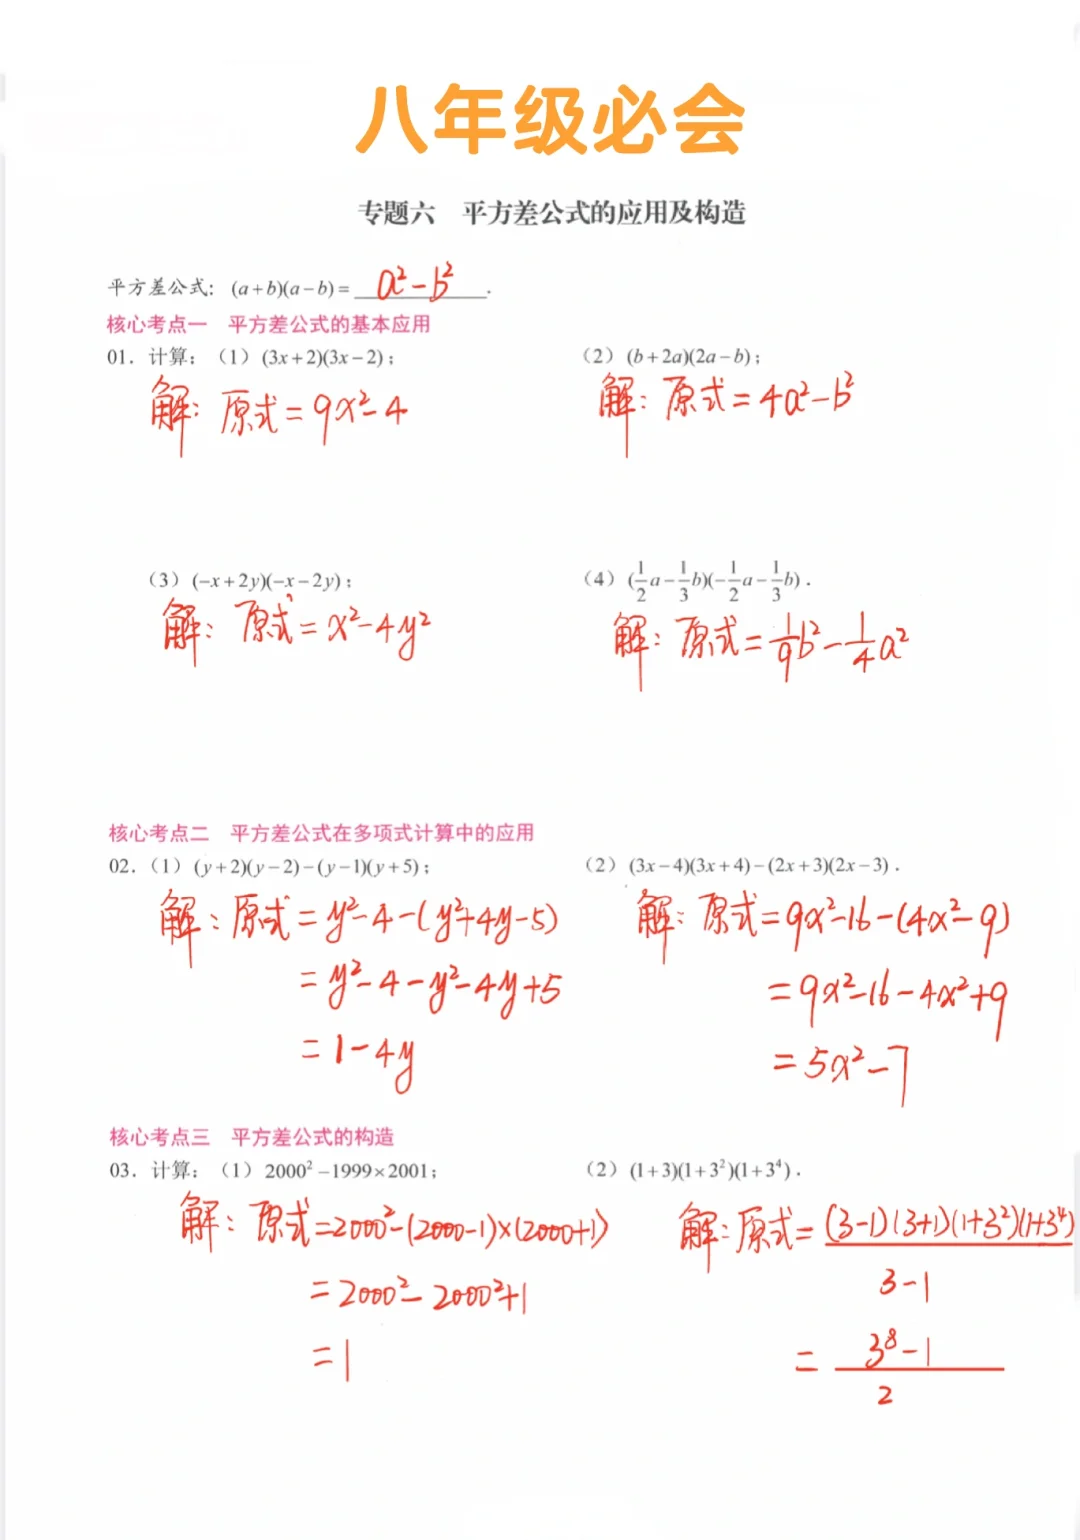 八年级必会
专题六 平方差公式的应用及构造
平方差公式: (a+b)(a−b)= a²−b² .
核心考点一 平方差公式的基本应用
01. 计算: (1) (3x+2)(3x−2);
解: 原式=9x²−4
(2) (b+2a)(2a−b);
解: 原式=4a²−b²
(3) (−x+2y)(−x−2y);
解: 原式=x²−4y²
(4) (1/2a−1/3b)(−1/2a−1/3b).
解: 原式=1/9b²−1/4a²
核心考点二 平方差公式在多项式计算中的应用
02. (1) (y+2)(y−2)−(y−1)(y+5);
解: 原式=y²−4−(y²+4y−5)
=y²−4−y²−4y+5
=1−4y
(2) (3x−4)(3x+4)−(2x+3)(2x−3).
解: 原式=9x²−16−(4x²−9)
=9x²−16−4x²+9
=5x²−7
核心考点三 平方差公式的构造
03. 计算: (1) 2000²−1999×2001;
解: 原式=2000²−(2000−1)×(2000+1)
=2000²−2000²+1
=1
(2) (1+3)(1+3²)(1+3⁴).
解: 原式=(3−1)(3+1)(1+3²)(1+3⁴)
3−1
= 3⁸−1
2